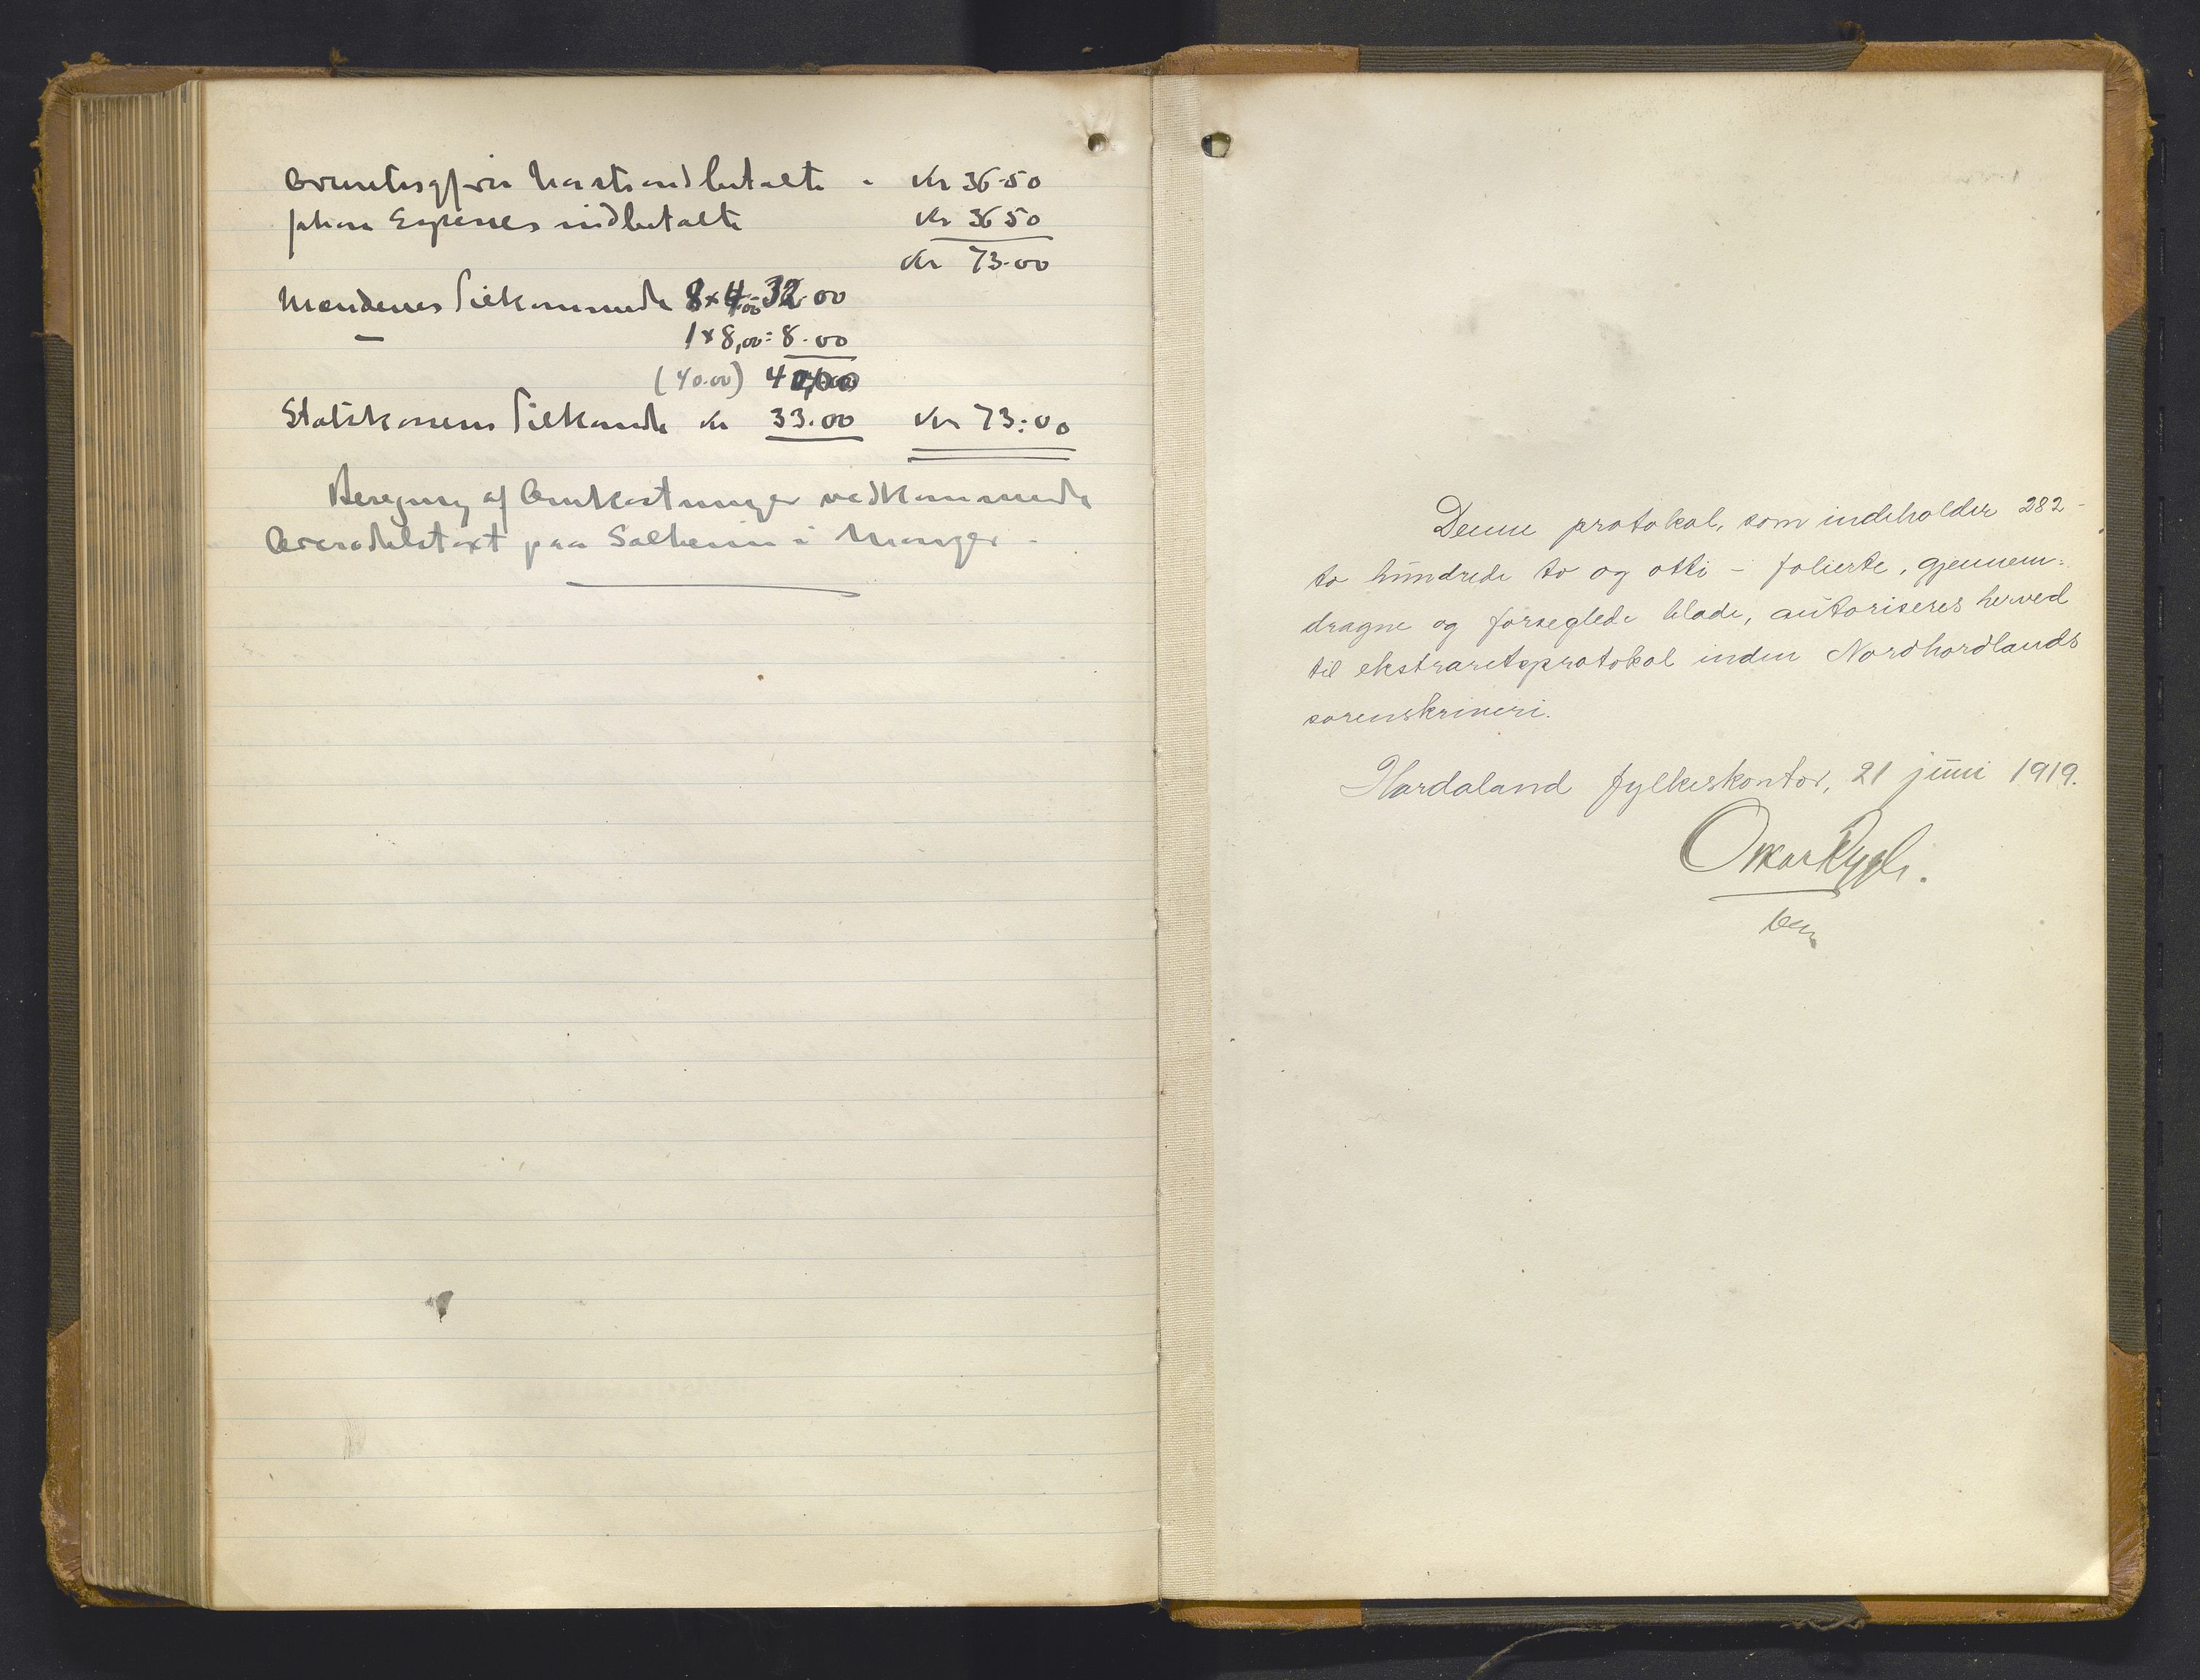 indbetalte - Kr 36-50
Johan Espenes indbetalte Kr 36 50
Kr 73-00
Mændenes Tilkommende 8 x 4,00 = 32.00
— 1 x 8,00 = 8.00
(40.00) 40,00
Statskassens Tilkomde Kr 33.00 Kr 73:00
Beregning af Omkostninger vedkommende
Overodelstaxt paa Solheim i Manger -
Denne protokol, som indeholder 282 -
to hundrede to og otti - folierte, gjennem-
dragne og forseglede blade, autoriseres herved
til ekstraretsprotokol inden Nordhordlands
sorenskriveri.
Hordaland fylkeskontor, 21 juni 1919.